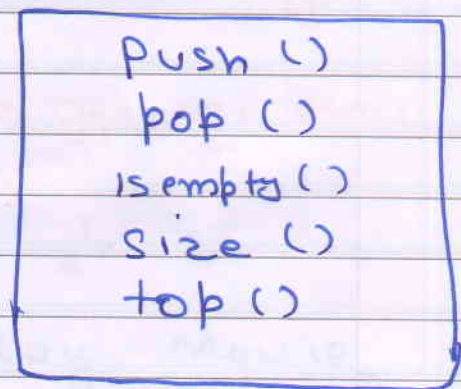 push ()
pop ()
isempty ()
size ()
top ()